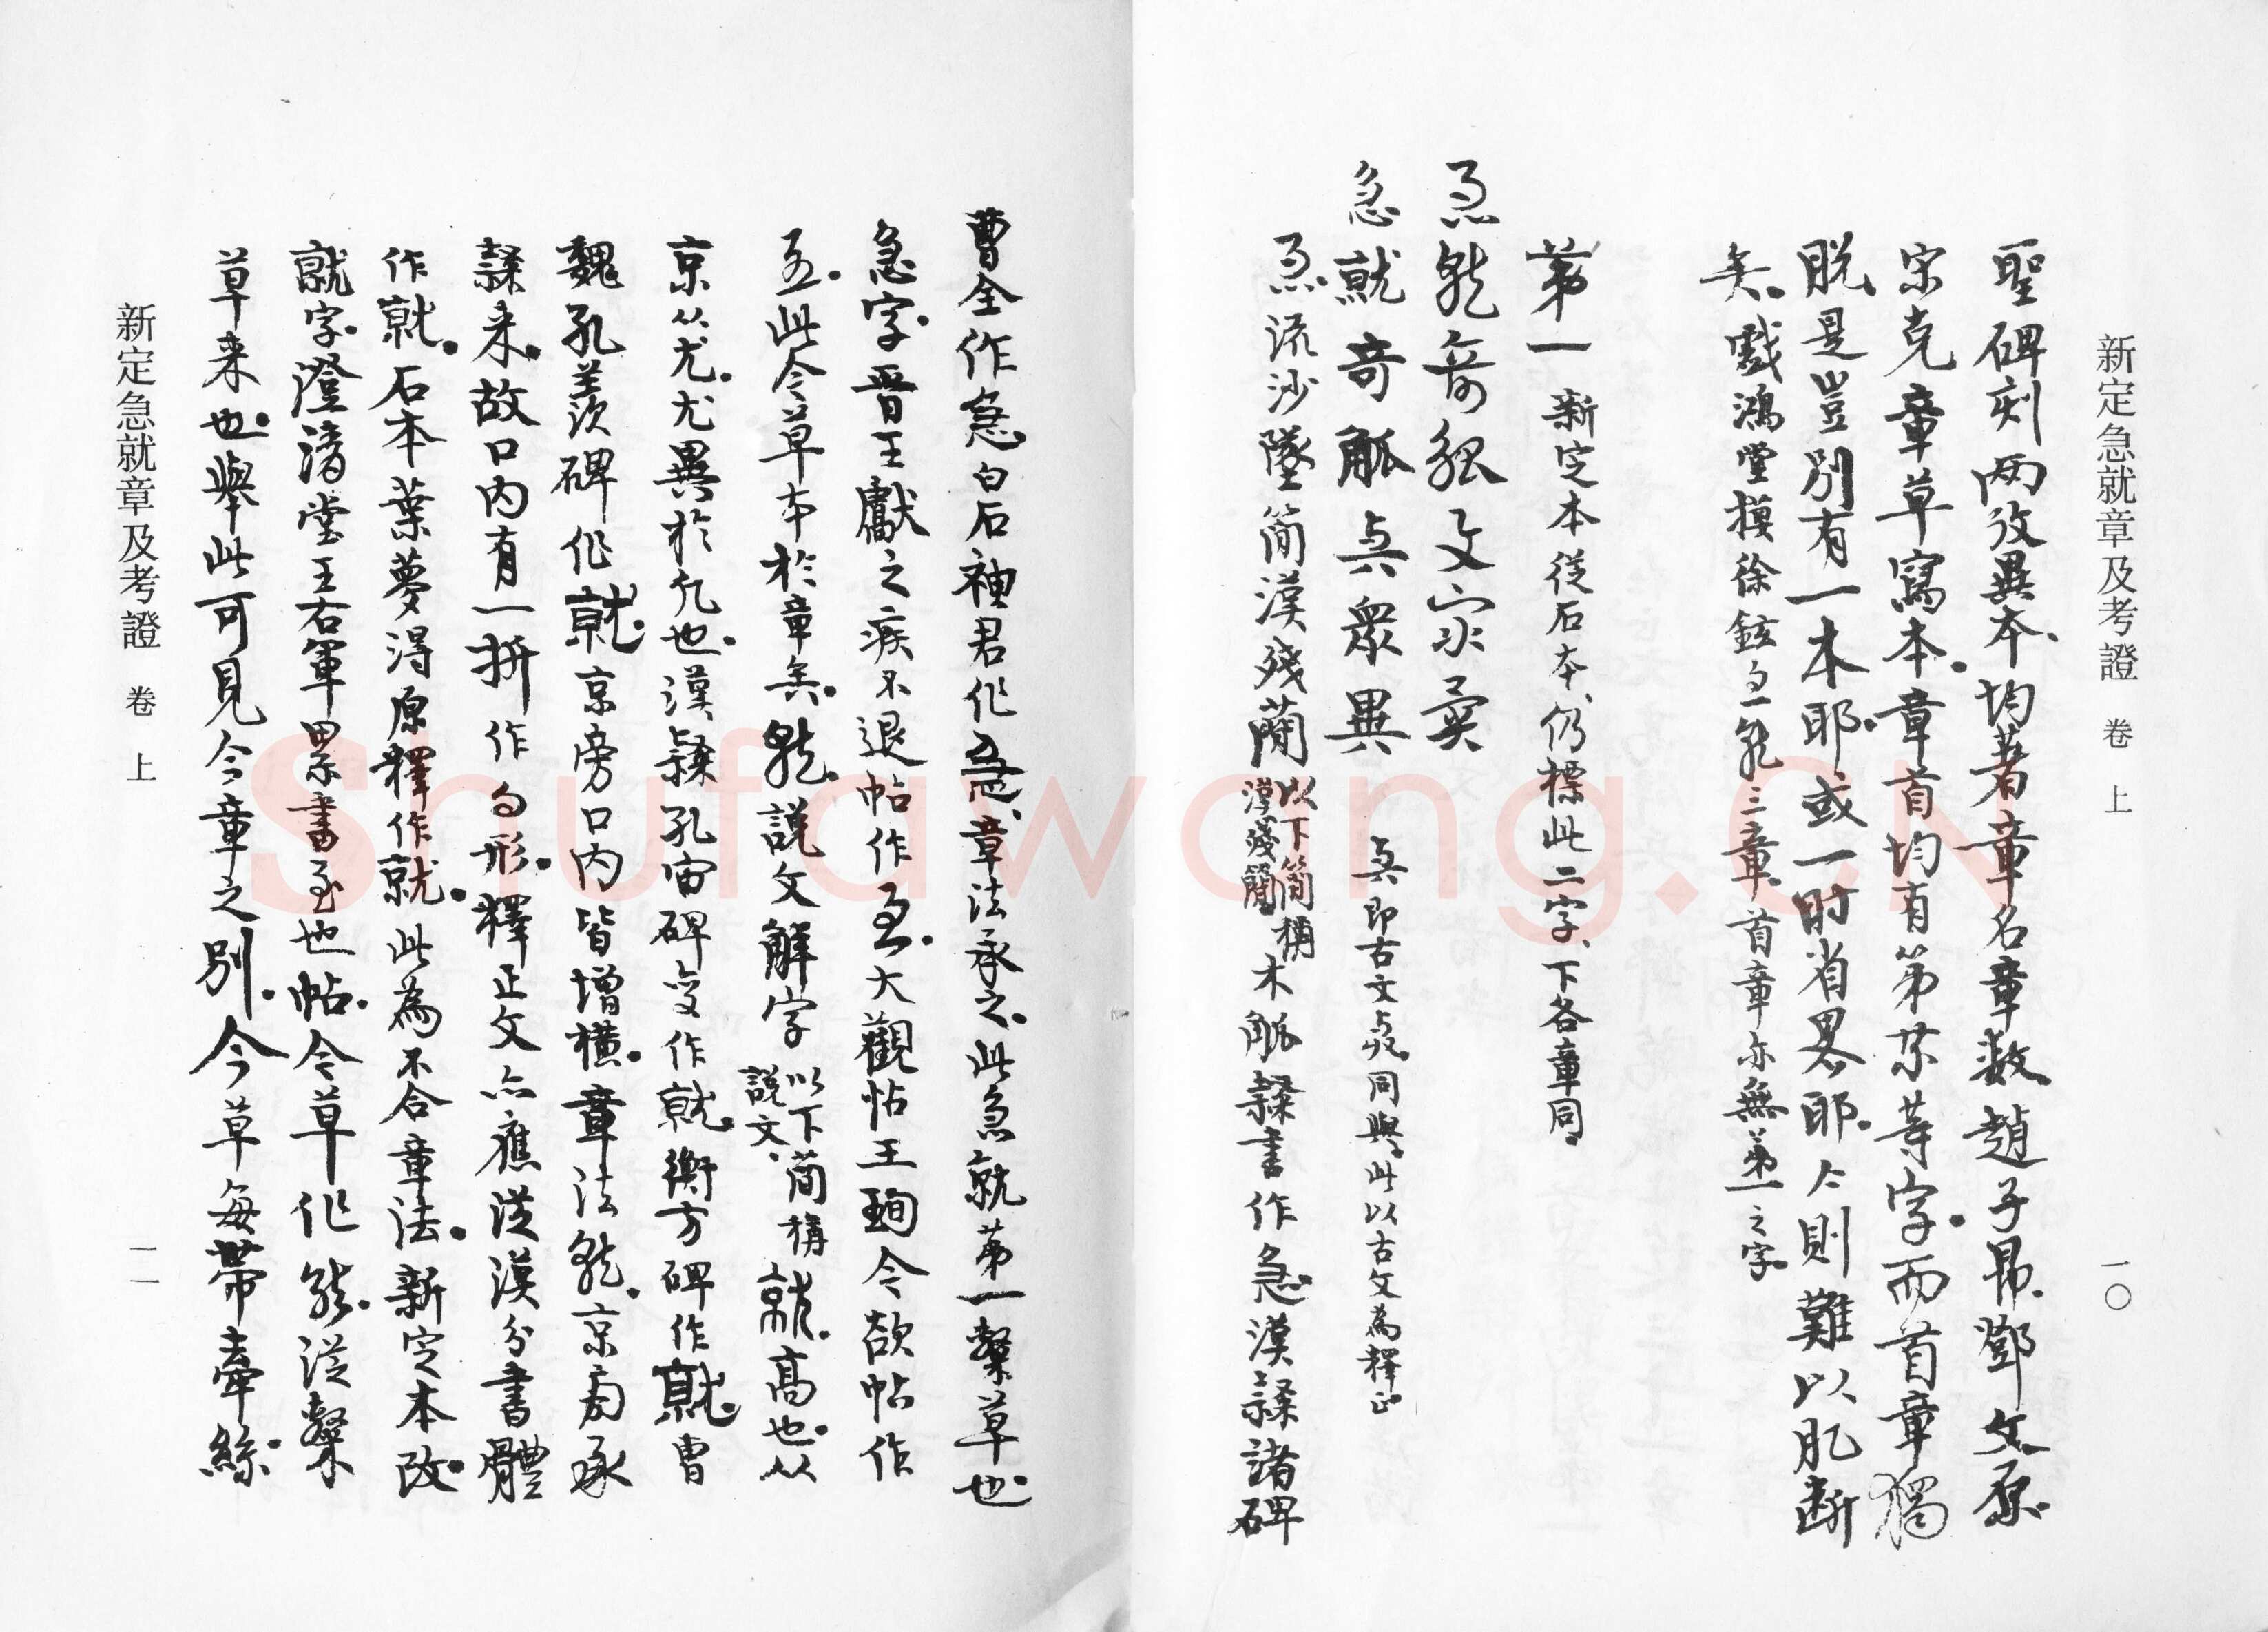 新定急就章及考證 卷上 一〇
聖碑刻兩攷異本、均著章名章數、趙子昂、鄧文原、
宋克章草寫本。章首均有第某等字。而首章獨
脫、是豈別有一本耶。或一時省畧耶。今則難以肊斷
矣。戲鴻堂摸徐鉉急就三章、首章亦無第一之字。
第一 新定本從石本、仍標此二字、下各章同、
急就奇觚文字異
急就奇觚與眾異 與即古文與、同與、此以古文為釋正。
急、流沙墜簡漢殘蕳以下簡稱漢殘簡木觚隸書作急、漢隸諸碑
曹全作急、白石神君作急、章法承之。此急就第一檃草也
急字。晉王獻之疾不退帖作急。大觀帖王珣今欲帖作
急。此今草本於章矣。就、說文解字以下簡稱說文、就。高也。从
京从尤。尤異於凡也。漢隸孔宙碑變作就。衡方碑作就。曹
魏孔羨碑作就。京旁口內皆增橫。章法就。京旁承
隸来。故口内有一拼作勻形。釋正文亦應從漢分書體
作就。石本葉夢得原釋作就。此為不合章法。新定本改。
就字。澄清堂王右軍累書至也帖。今草作就。從檃
草来也。舉此可見今章之別。今草每帶牽絲。
新定急就章及考證 卷上 一一